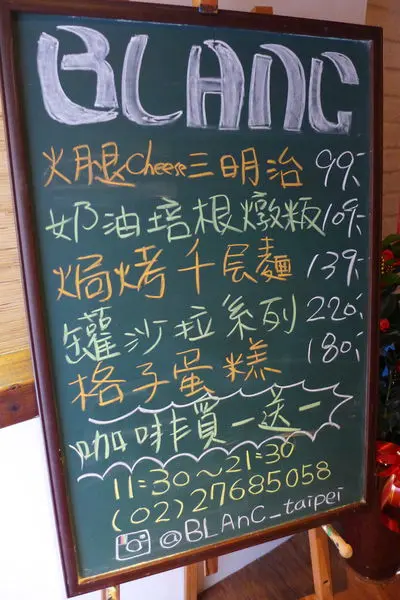 BLANC
火腿cheese三明治 99,-
奶油培根燉飯 109,-
焗烤千层麵 139,-
罐沙拉系列 220,-
格子蛋糕 180,-
咖啡買一送一
11:30~21:30
(02)27685058
@BLAnC_taipei